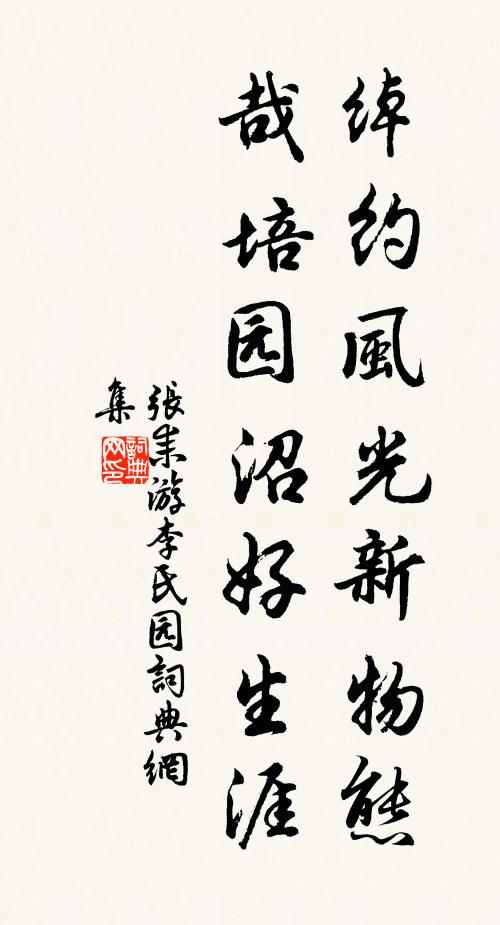 綽約風光新物態
哉培园沼好生涯
張耒游李氏园詞典網
集
詞典网印